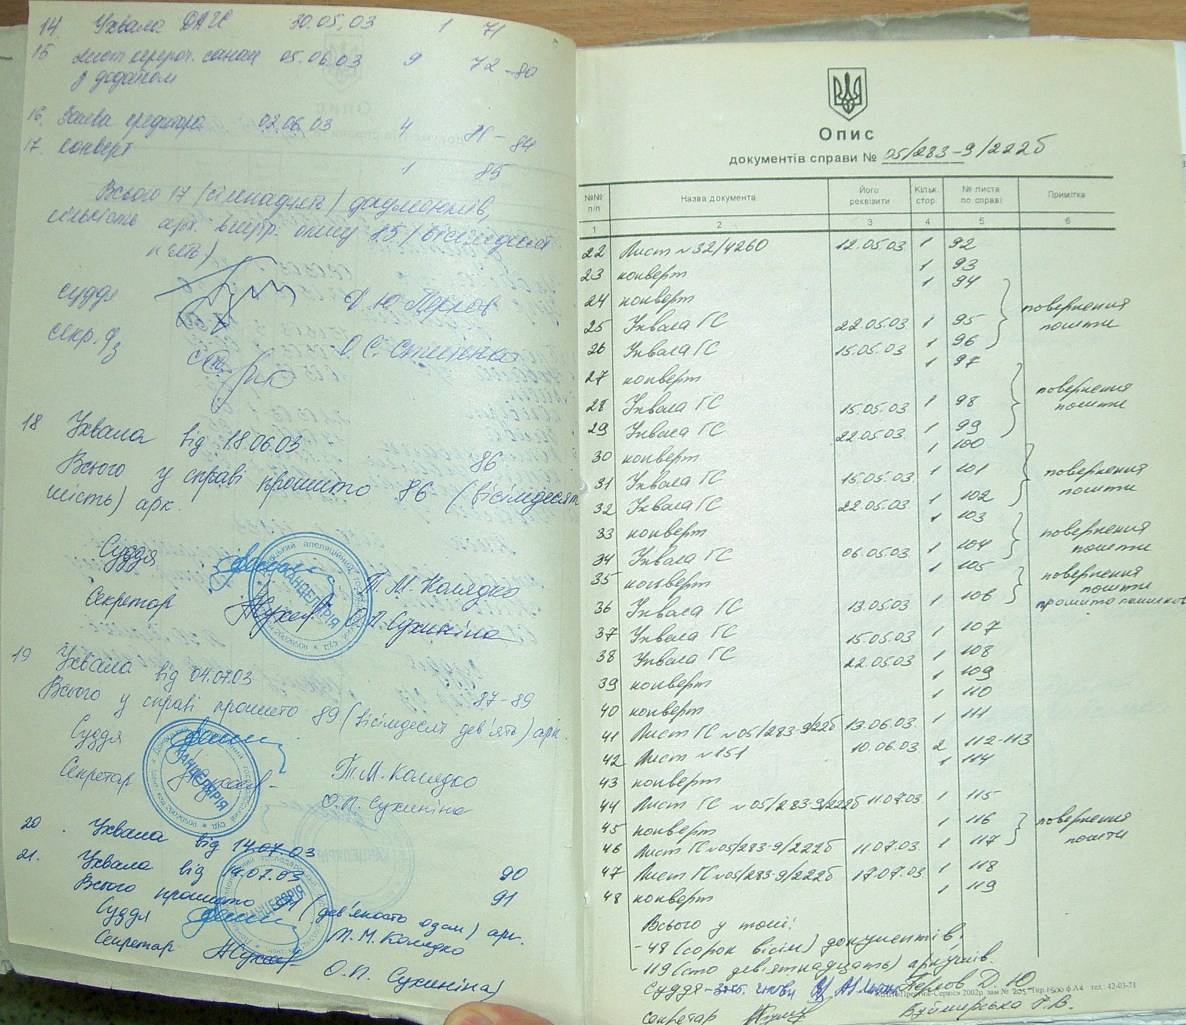 14. Ухвала ДАГС 30.05.03 1 71
15 Лист 05.06.03 9 72-80
з додатком
16. Заява кредитора 02.06.03 4 81-84
17. конверт 1 85
Всього 17 /сімнадцять/ документів,
кількість арк. внутр. опису 85 / вісімдесят
п'ять)
суддя
секр. О.С.
18 Ухвала від 18.06.03 86
Всього у справі прошито 86 (вісімдесят
шість) арк.
Суддя Т.М. Колядко
Секретар О.П. Сухиніна
КАНЦЕЛЯРІЯ
19 Ухвала від 04.07.03 87-89
Всього у справі прошито 89 (вісімдесят дев'ять) арк.
Суддя Т.М. Колядко
Секретар О.П. Сухиніна
КАНЦЕЛЯРІЯ
20. Ухвала від 14.07.03 90
21. Ухвала від 17.07.03 91
Всього прошито 91 (дев'яносто один) арк.
Суддя Т.М. Колядко
Секретар О.П. Сухиніна
КАНЦЕЛЯРІЯ
Опис
документів справи № 05/283-9/222б
№№ п/п Назва документа Його реквізити Кільк. стор. № листа по справі Примітка
1 2 3 4 5 6
22 Лист №32/4260 12.05.03 1 92
23 конверт 1 93
24 конверт 1 94
25 Ухвала ГС 22.05.03 1 95 повернення
26 Ухвала ГС 15.05.03 1 96 пошти
27 конверт 1 97
28 Ухвала ГС 15.05.03 1 98 повернення
29 Ухвала ГС 22.05.03 1 99 пошти
30 конверт 1 100
31 Ухвала ГС 15.05.03 1 101 повернення
32 Ухвала ГС 22.05.03 1 102 пошти
33 конверт 1 103 повернення
34 Ухвала ГС 06.05.03 1 104 пошти
35 конверт 1 105 повернення
пошти
36 Ухвала ГС 13.05.03 1 106
37 Ухвала ГС 15.05.03 1 107
38 Ухвала ГС 22.05.03 1 108
39 конверт 1 109
40 конверт 1 110
41 Лист ГС №05/283-9/222б 13.06.03 1 111
42 Лист №151 10.06.03 2 112-113
43 конверт 1 114
44 Лист ГС №05/283-9/222б 11.07.03 1 115
45 конверт 1 116 повернення
46 Лист ГС №05/283-9/222б 11.07.03 1 117 пошти
47 Лист ГС №05/283-9/222б 17.07.03 1 118
48 конверт 1 119
Всього у томі:
-48 (сорок вісім) документів,
-119 (сто дев'ятнадцать) аркушів.
Суддя Д. Ю.
Секретар Р.В.